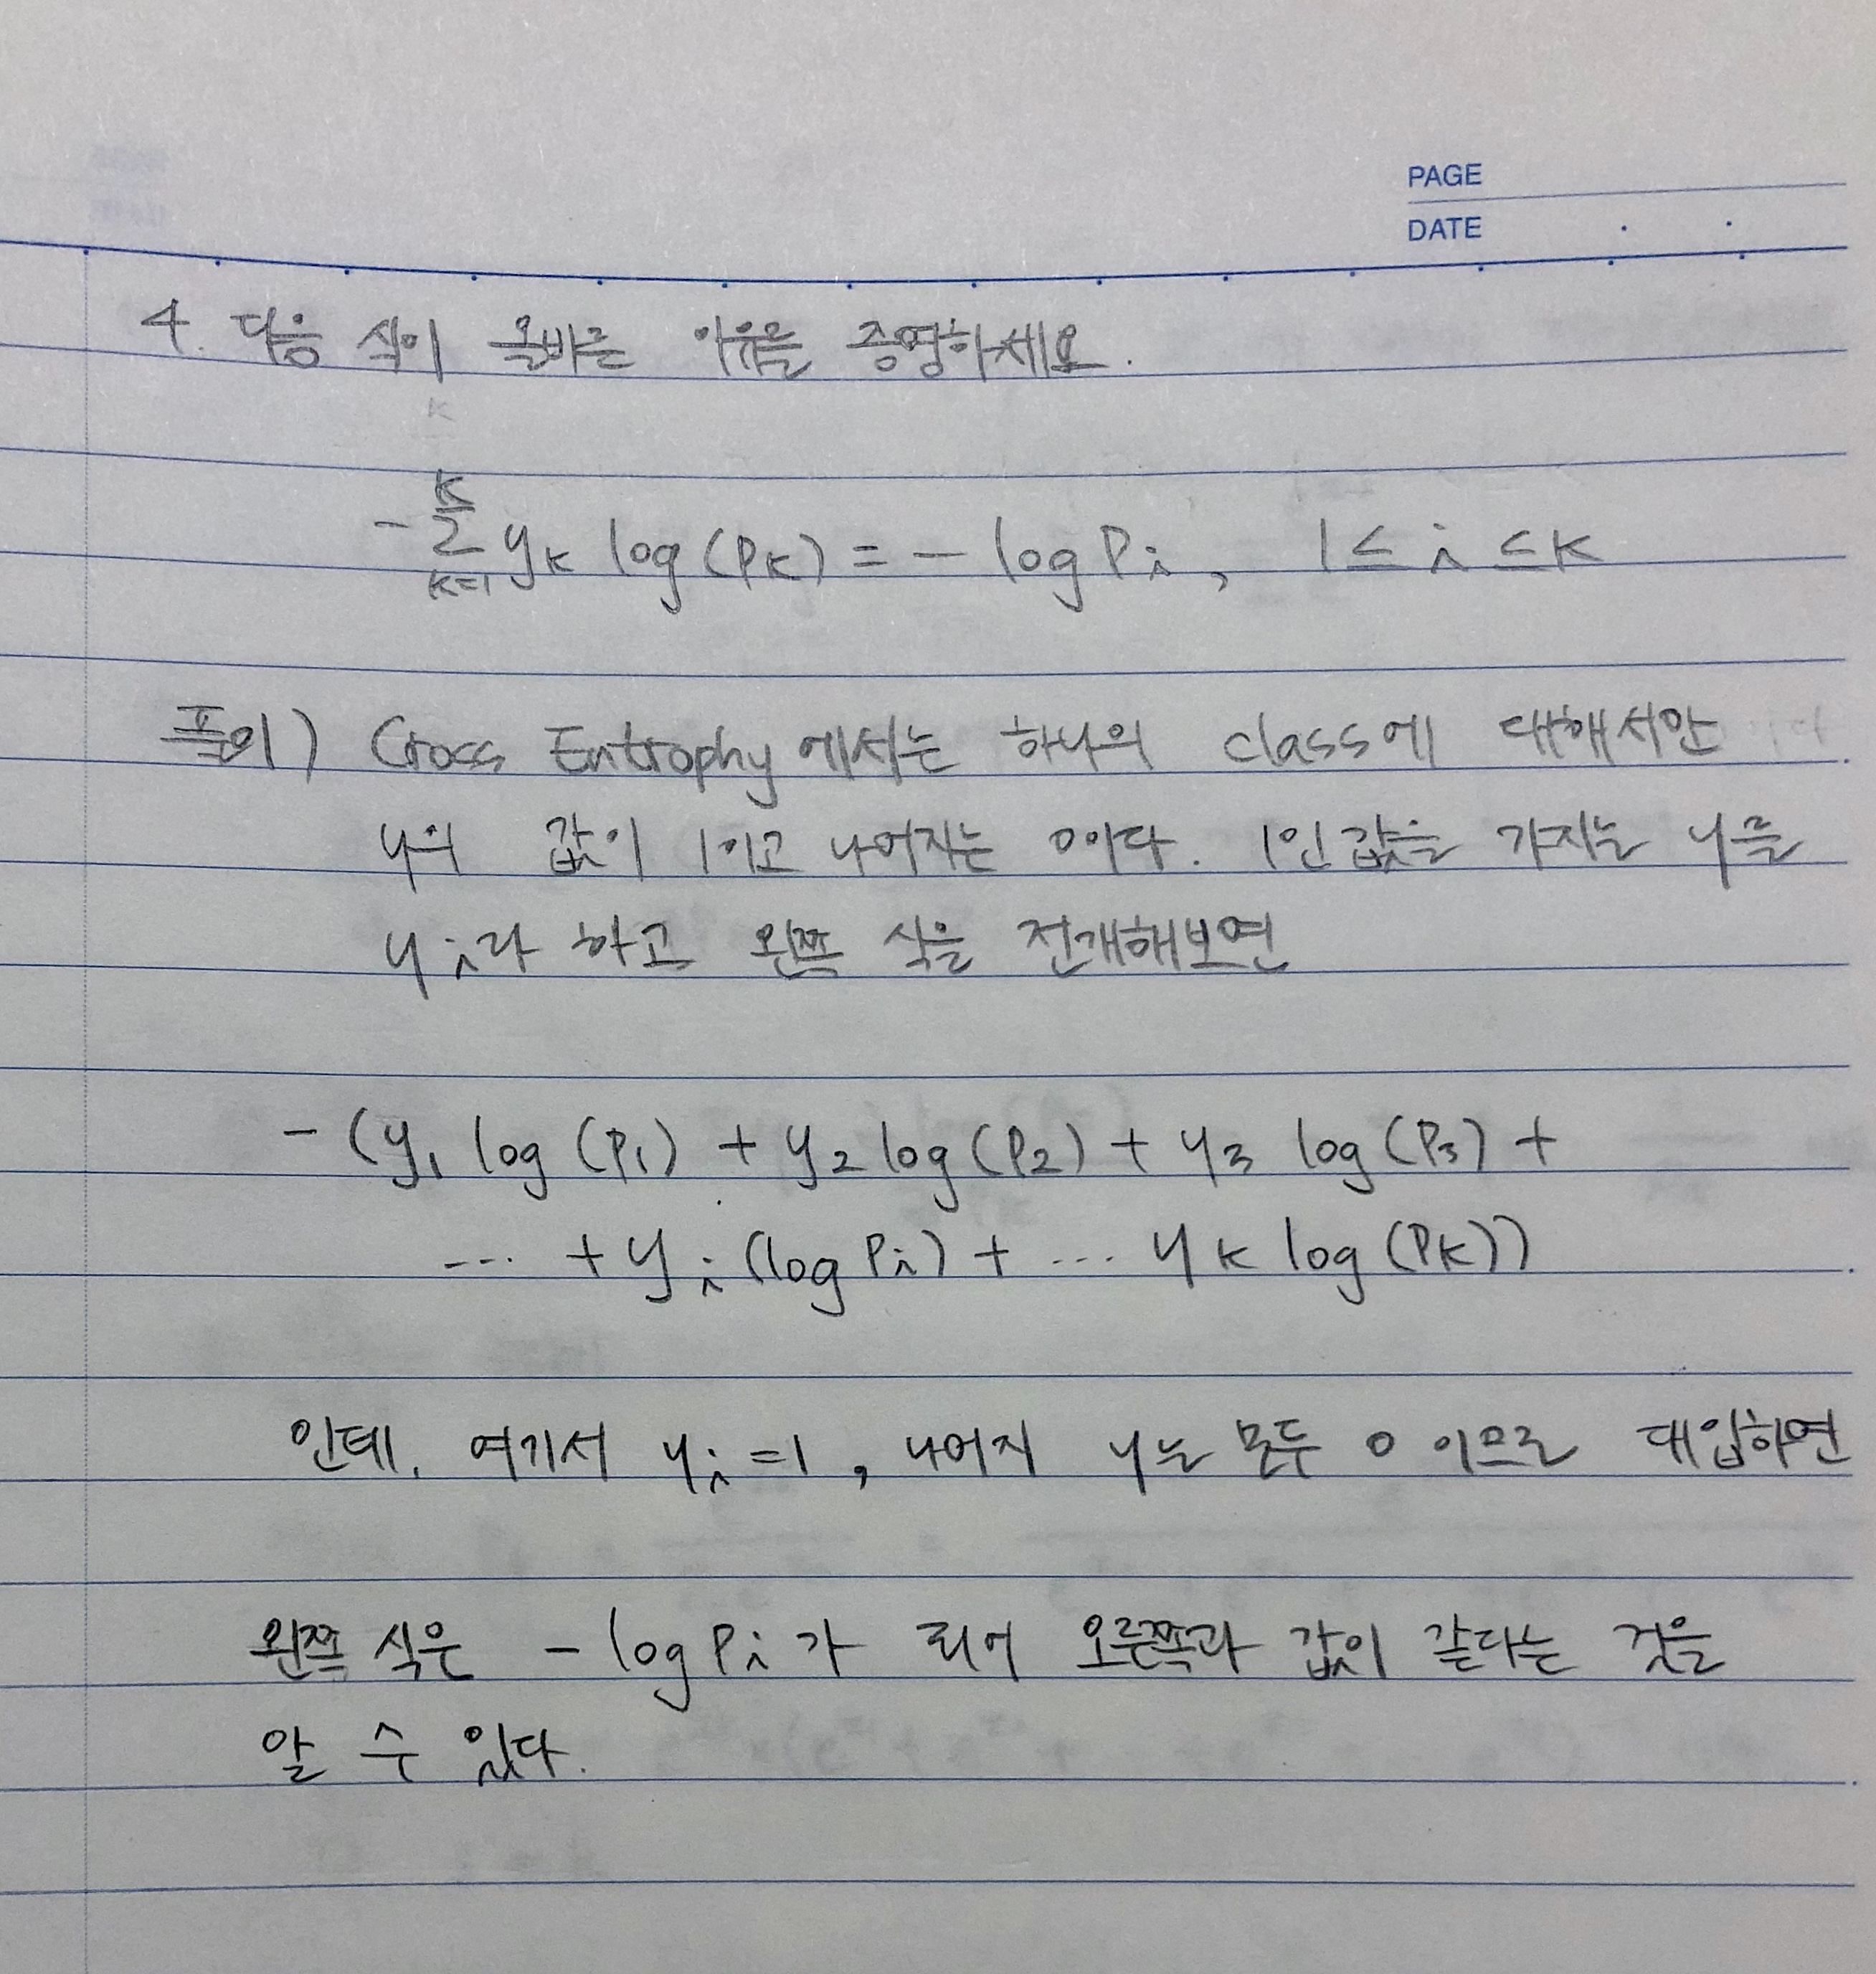 PAGE
DATE
4. 다음 식이 올바른 이유를 증명하세요.
K
-∑ yₖ log(Pₖ) = - log Pᵢ, 1 ≤ i ≤ K
K=1
풀이) Cross Entrophy에서는 하나의 class에 대해서만
y의 값이 1이고 나머지는 0이다. 1인 값을 가지는 y를
yᵢ라 하고 왼쪽 식을 전개해보면
-(y₁ log(P₁) + y₂ log(P₂) + y₃ log(P₃) +
... + yᵢ(log Pᵢ) + ... yₖ log(Pₖ))
인데, 여기서 yᵢ=1, 나머지 y는 모두 0 이므로 대입하면
왼쪽 식은 - log Pᵢ가 되어 오른쪽과 값이 같다는 것을
알 수 있다.